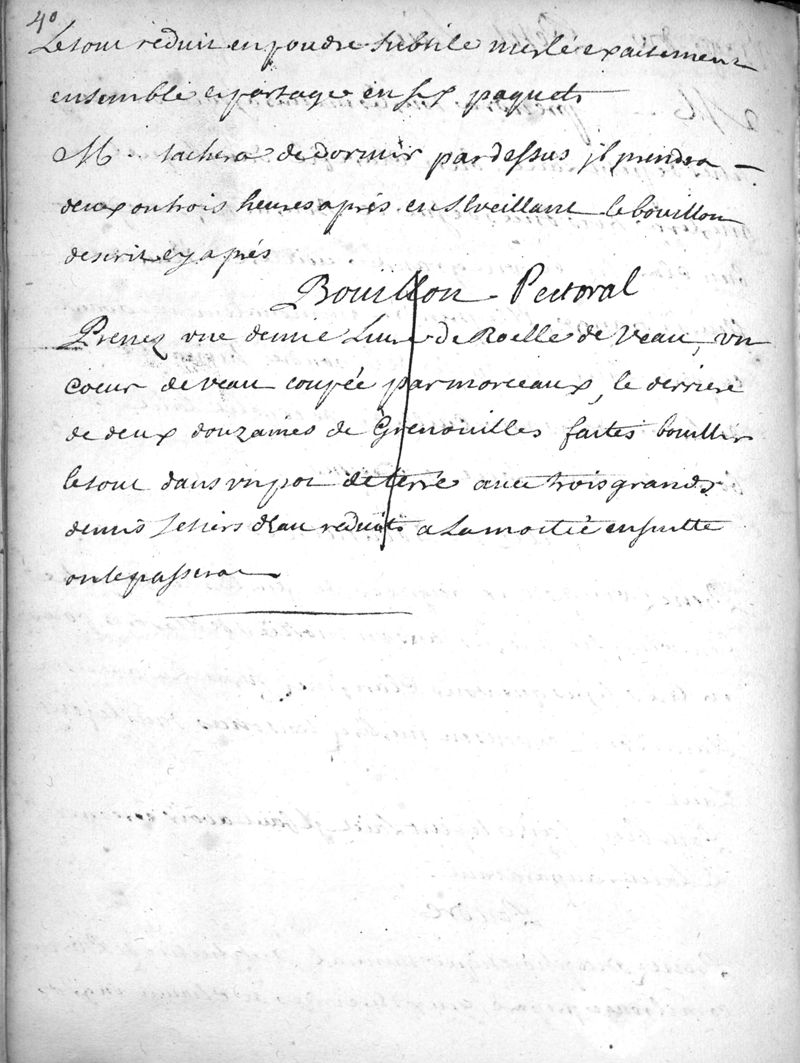 40
Le tout reduit en poudre subtile meslé exactement
ensemble et partagé en six paquets
M. tachera de dormir par dessus jl prendra
deux ou trois heures aprés en s'eveillant le bouillon
descrit cy aprés
Bouillon Pectoral
Prenez une demie Livre de Roelle de veau, un
coeur de veau coupée par morceaux, le derriere
de deux douzaines de Grenouilles faites bouillir
le tout dans un pot de terre avec trois grands
demis setiers d'Eau reduits a La moitié ensuitte
on le passera